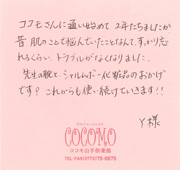 ココモさんに通い始めて2年たちましたが
昔肌のことで悩んでいたことなんて、すっかり忘
れるくらい、トラブルがなくなりました。
先生の腕とシャルムだー化粧品のおかげ
です？これからも使い続けていきます!!
Y様
COCOMO
ココモ山手倶楽部
TEL・FAX(0773)75-6875